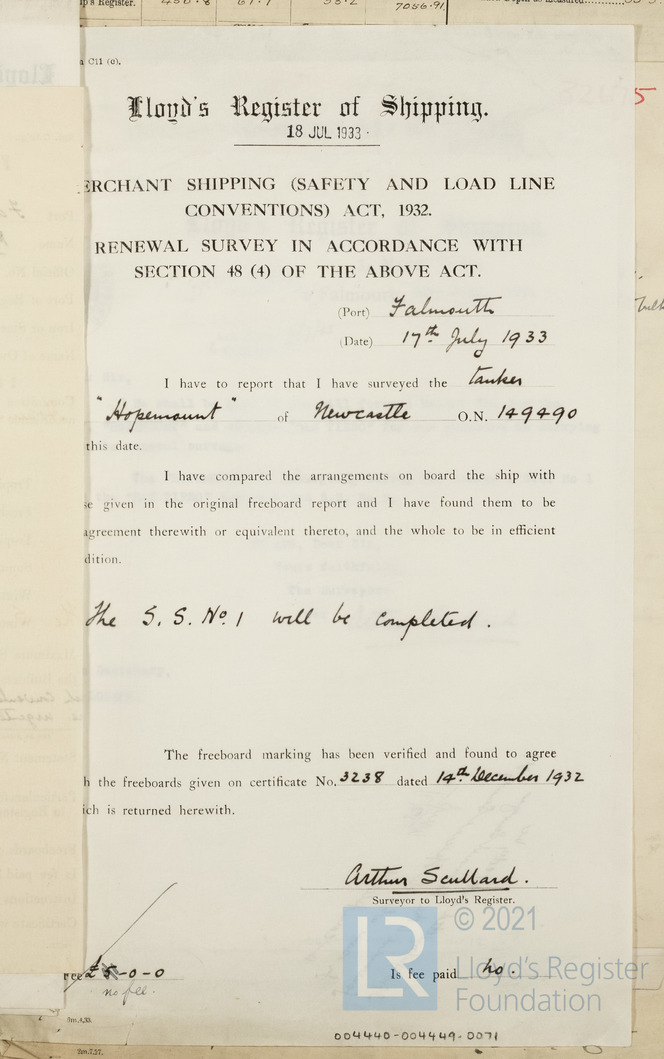 p's Register. 430.8 67.7 33.2 7056.91
C11 (o).
5
Lloyd's Register of Shipping.
18 JUL 1933
ERCHANT SHIPPING (SAFETY AND LOAD LINE
CONVENTIONS) ACT, 1932.
RENEWAL SURVEY IN ACCORDANCE WITH
SECTION 48 (4) OF THE ABOVE ACT.
(Port) Falmouth
(Date) 17th July 1933
I have to report that I have surveyed the tanker
"Hopemount" of Newcastle O.N. 149490
this date.
I have compared the arrangements on board the ship with
se given in the original freeboard report and I have found them to be
agreement therewith or equivalent thereto, and the whole to be in efficient
dition.
The S. S. No. 1 will be completed.
The freeboard marking has been verified and found to agree
h the freeboards given on certificate No. 3238 dated 14th December 1932
ich is returned herewith.
Arthur Scullard.
Surveyor to Lloyd's Register.
Is fee paid no.
ee £ 5-0-0
no fee.
3m.4,33.
2m.7,27.
LR
© 2021
Lloyd's Register
Foundation
004440-004449-0071